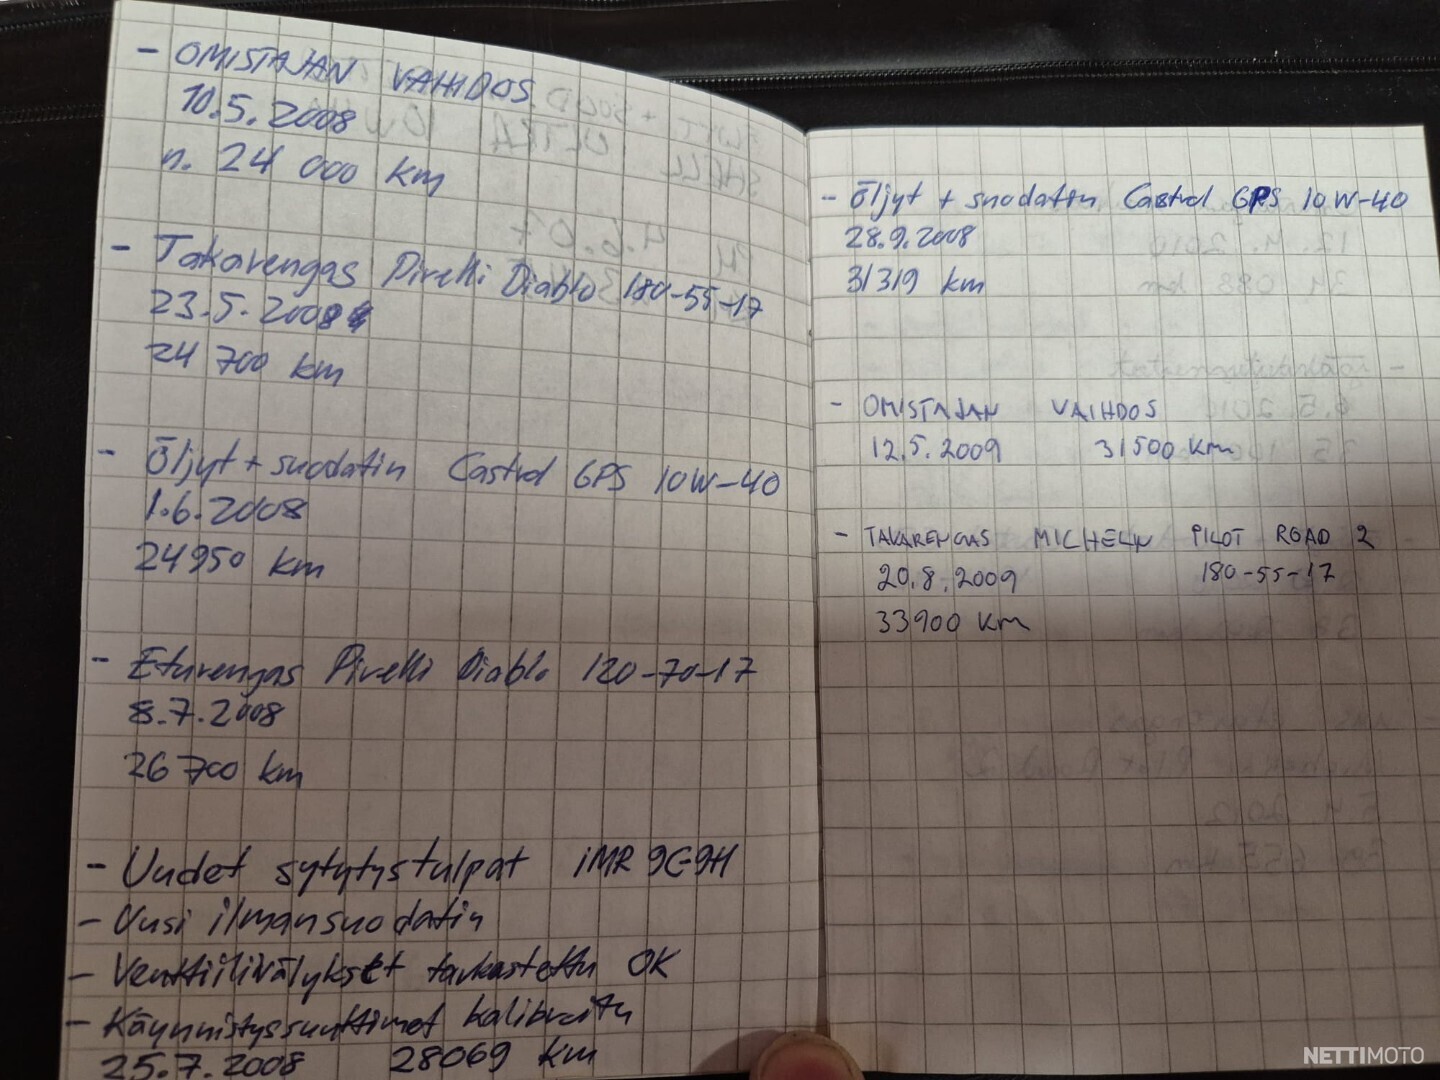 - OMISTAJAN VAIHDOS
10.5.2008
n. 24 000 km
- Takarengas Pirelli Diablo 180-55-17
23.5.2008
24 700 km
- Öljyt + suodatin Castrol GPS 10W-40
1.6.2008
24950 km
- Eturengas Pirelli Diablo 120-70-17
8.7.2008
26700 km
- Uudet sytytystulpat IMR 9E-9H
- Uusi ilmansuodatin
- Venttiilivälykset tarkastettu OK
- Käynnistyssuuttimet kalibroitu
25.7.2008 28069 km
- Öljyt + suodatin Castrol GPS 10W-40
28.9.2008
31319 km
- OMISTAJAN VAIHDOS
12.5.2009 31500 km
- TAKARENGAS MICHELIN PILOT ROAD 2
20.8.2009 180-55-17
33900 km
NETTIMOTO